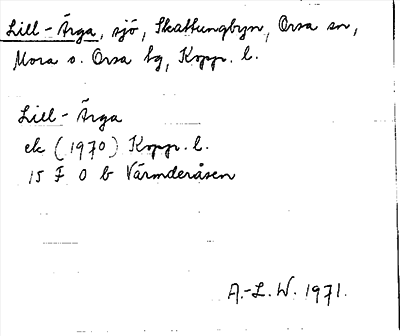 Lill-Ärga, sjö, Skattungbyn, Orsa sn,
Mora o. Orsa tg, Kopp. l.
Lill-Ärga
ek (1970) Kopp. l.
15 F 0 b Värmderåsen
A.-L.W. 1971.